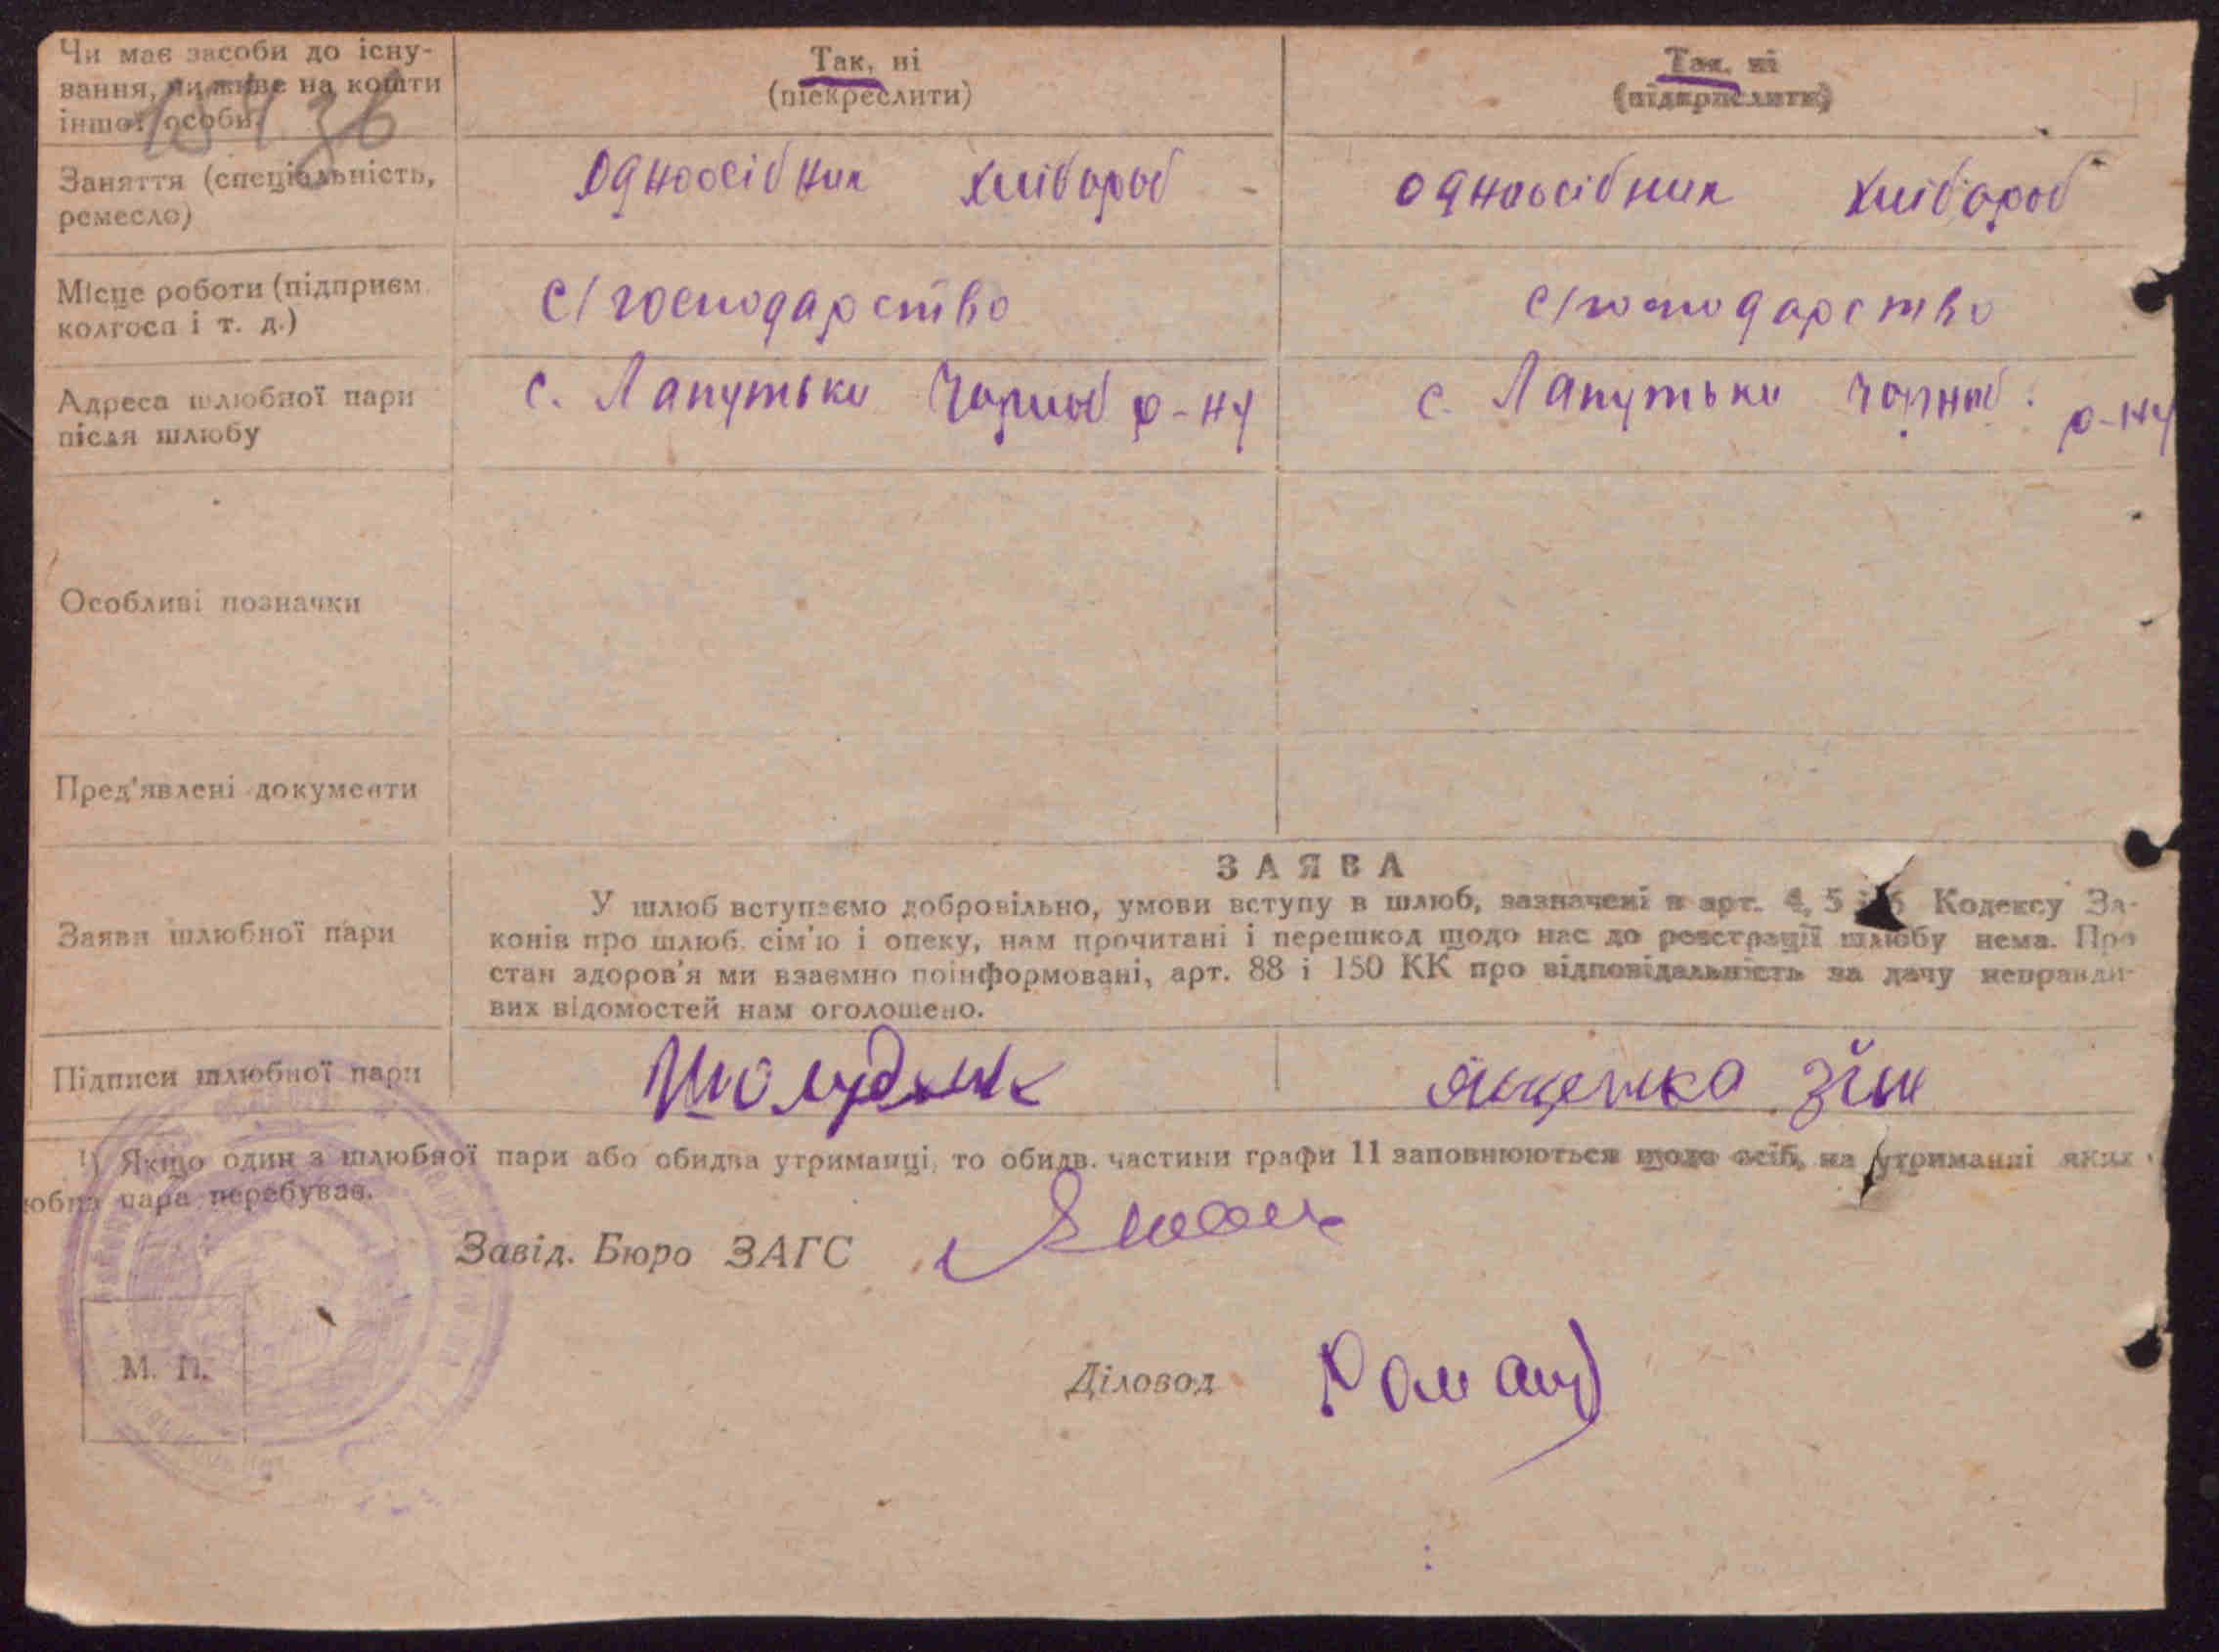 Чи має засоби до існу-
вання, чи живе на кошти
іншої особи
Так, ні
(піекреслити)
Так, ні
(підкрислити)
Заняття (спеціяльність,
ремесло)
Одноосібник хлібороб
одноосібник хлібороб
Місце роботи (підприєм.
колгосп і т. д.)
с/господарство
с/господарство
Адреса шлюбної пари
після шлюбу
с. Лапутьки Чорноб р-ну
с. Лапутьки Чорноб. р-ну
Особливі позначки
Пред'явлені документи
Заяви шлюбної пари
ЗАЯВА
У шлюб вступаємо добровільно, умови вступу в шлюб, зазначені в арт. 4, 5 і 6 Кодексу За-
конів про шлюб, сім'ю і опеку, нам прочитані і перешкод щодо нас до реєстрації шлюбу нема. Про
стан здоров'я ми взаємно поінформовані, арт. 88 і 150 КК про відповідальність за дачу неправди-
вих відомостей нам оголошено.
Підписи шлюбної пари
1) Якщо один з шлюбної пари або обидва утриманці, то обидв. частини графи 11 заповнюються щодо осіб, на утриманні яких
юбна пара перебуває.
Завід. Бюро ЗАГС
М. П.
Діловод